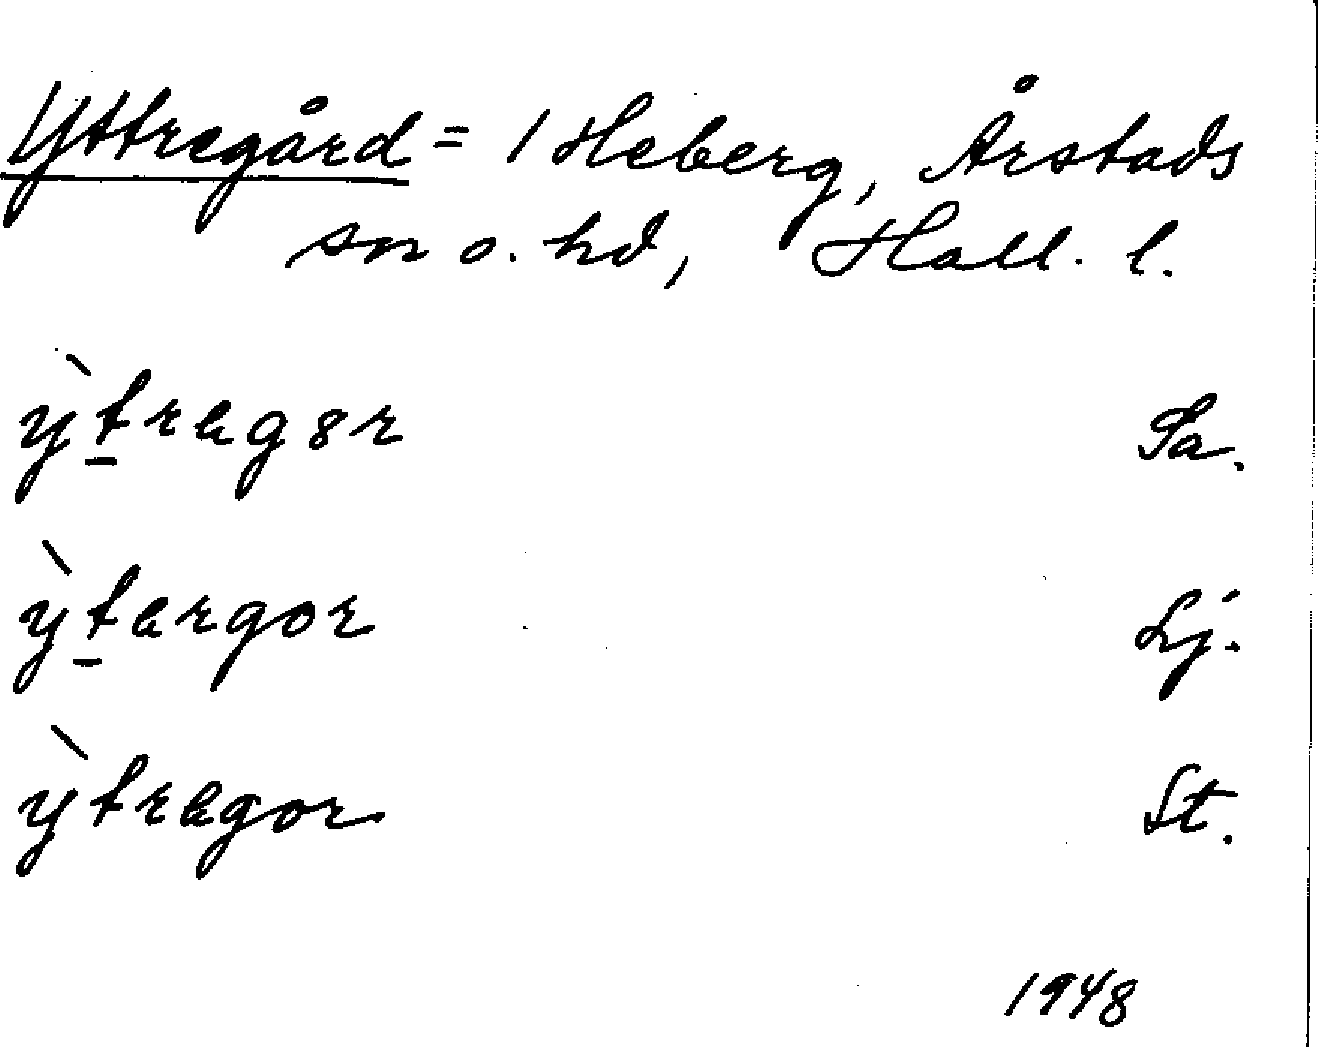 Yttregård = 1 Heberg, Årstads
sn o. hd, Hall. l.
ỳt̲rəgȣr Sa.
ỳt̲ərgor Lj.
ỳtrəgor St.
1948